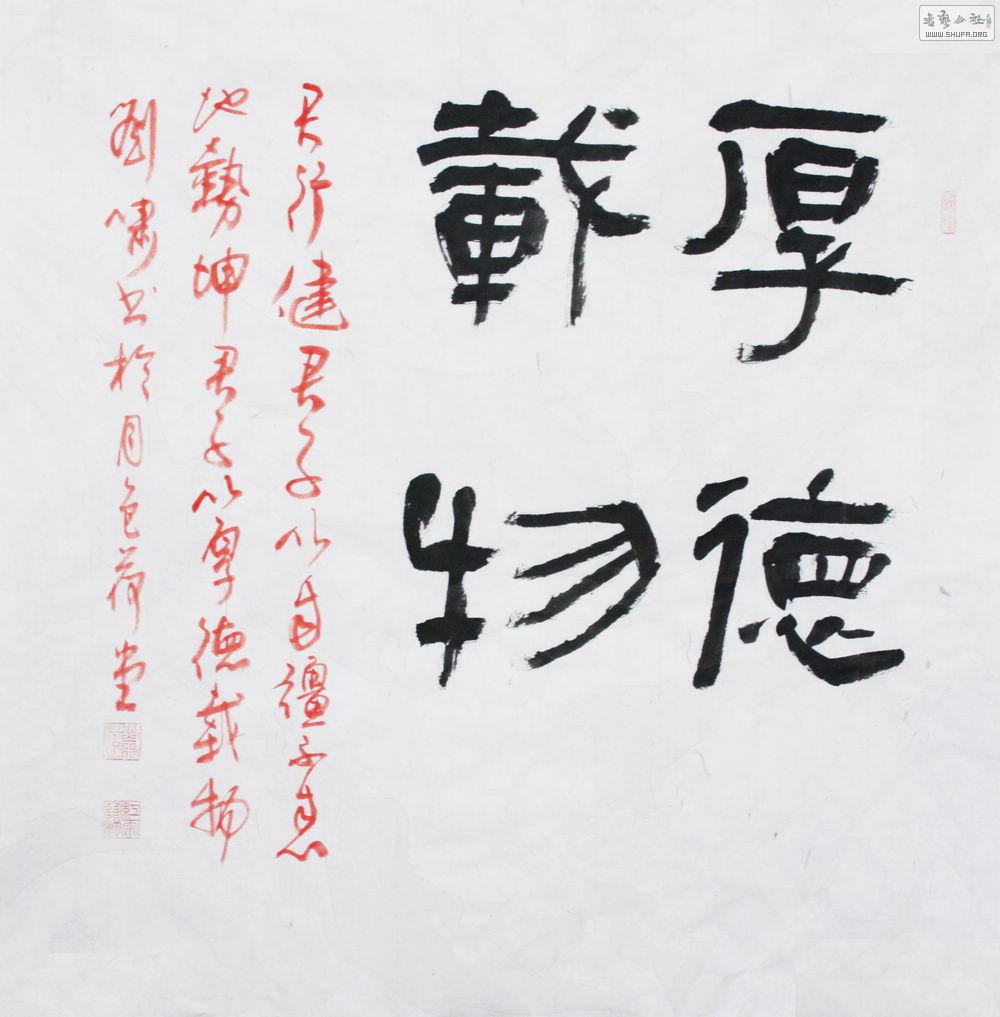 厚德
載物
天行健君子以自彊不息
地勢坤君子以厚德載物
劉啸书於月色荷堂
书艺公社
WWW.SHUFA.ORG